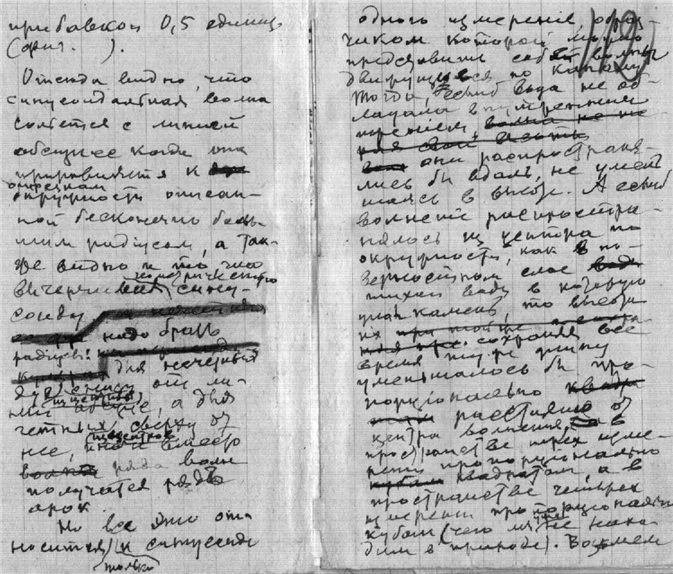 прибавкой 0,5 единиц
(фиг. ).
Отсюда видно, что
синусоидальная волна
сольется с линией
абсцисс когда она
приравняется к
отрезкам
окружности описан-
ной бесконечно боль-
шим радиусом, а так-
же видно и то что
вычерчивая синусо-
соиду
надо брать
радиусы:
для нечетных
дуг снизу от ли-
нии абсцисс, а для
четных, сверху от
нее, иначе вместо
ряда волн
получится рядъ
арок.
Но все это от-
носится к синусоиде
только
одного измерения, образ-
чиком которой можно
представить себе волны
движущиеся по каналу.
Тогда, еслиб вода не об-
ладала внутренним
трением,
они распространя-
лись бы вдаль, не умень-
шаясь в высоте. А еслиб
волнение распростра-
нялось из центра по
окружности, как в по-
верхностном слое
тихой воды в которую
упал камень, то высота
их
сохраняя все
время ту же длину
уменьшалось бы про-
порционально
расстоянию от
центра волнения, а в
пространстве трех изме-
рений пропорционально
квадратам, а в
пространстве четырех
измерений пропорционально
кубам (чего мы не нахо-
дим в природе). Возмем